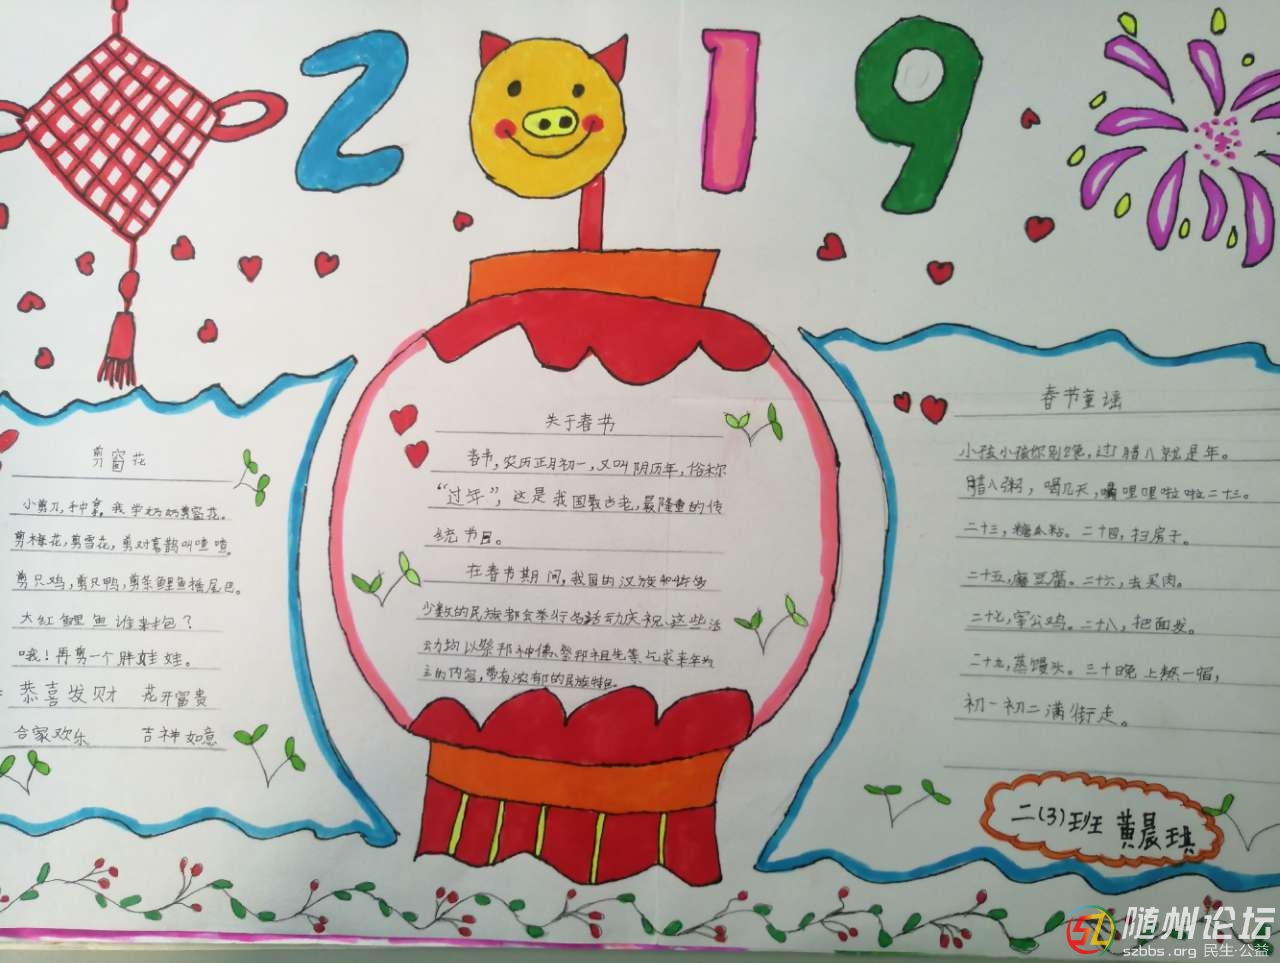 2 19
剪窗花
小剪刀,手中拿,我学奶奶剪窗花。
剪梅花,剪雪花,剪对喜鹊叫喳喳。
剪只鸡,剪只鸭,剪条鲤鱼摇尾巴。
大红鲤鱼谁来抱?
哦!再剪一个胖娃娃。
恭喜发财 花开富贵
合家欢乐 吉神如意
关于春节
春节,农历正月初一,又叫阴历年,俗称
“过年”,这是我国最古老,最隆重的传
统节日。
在春节期间,我国的汉族和
少数的民族都会举行各活动庆祝、这些活
动均以祭邦神儒、祭邦祖先等、乞求来年为
主的内容,带有浓郁的民族特色
春节童谣
小孩小孩你别馋,过腊八就是年。
腊八粥,喝几天,哩哩啦啦二十三。
二十三,糖瓜粘。二十四,扫房子。
二十五,磨豆腐。二十六,去买肉。
二十七,宰公鸡。二十八,把面发。
二十九,蒸馒头。三十晚上熬一宿,
初一初二满街走。
二(3)班 黄晨琪
随州论坛
szbbs.org 民生·公益